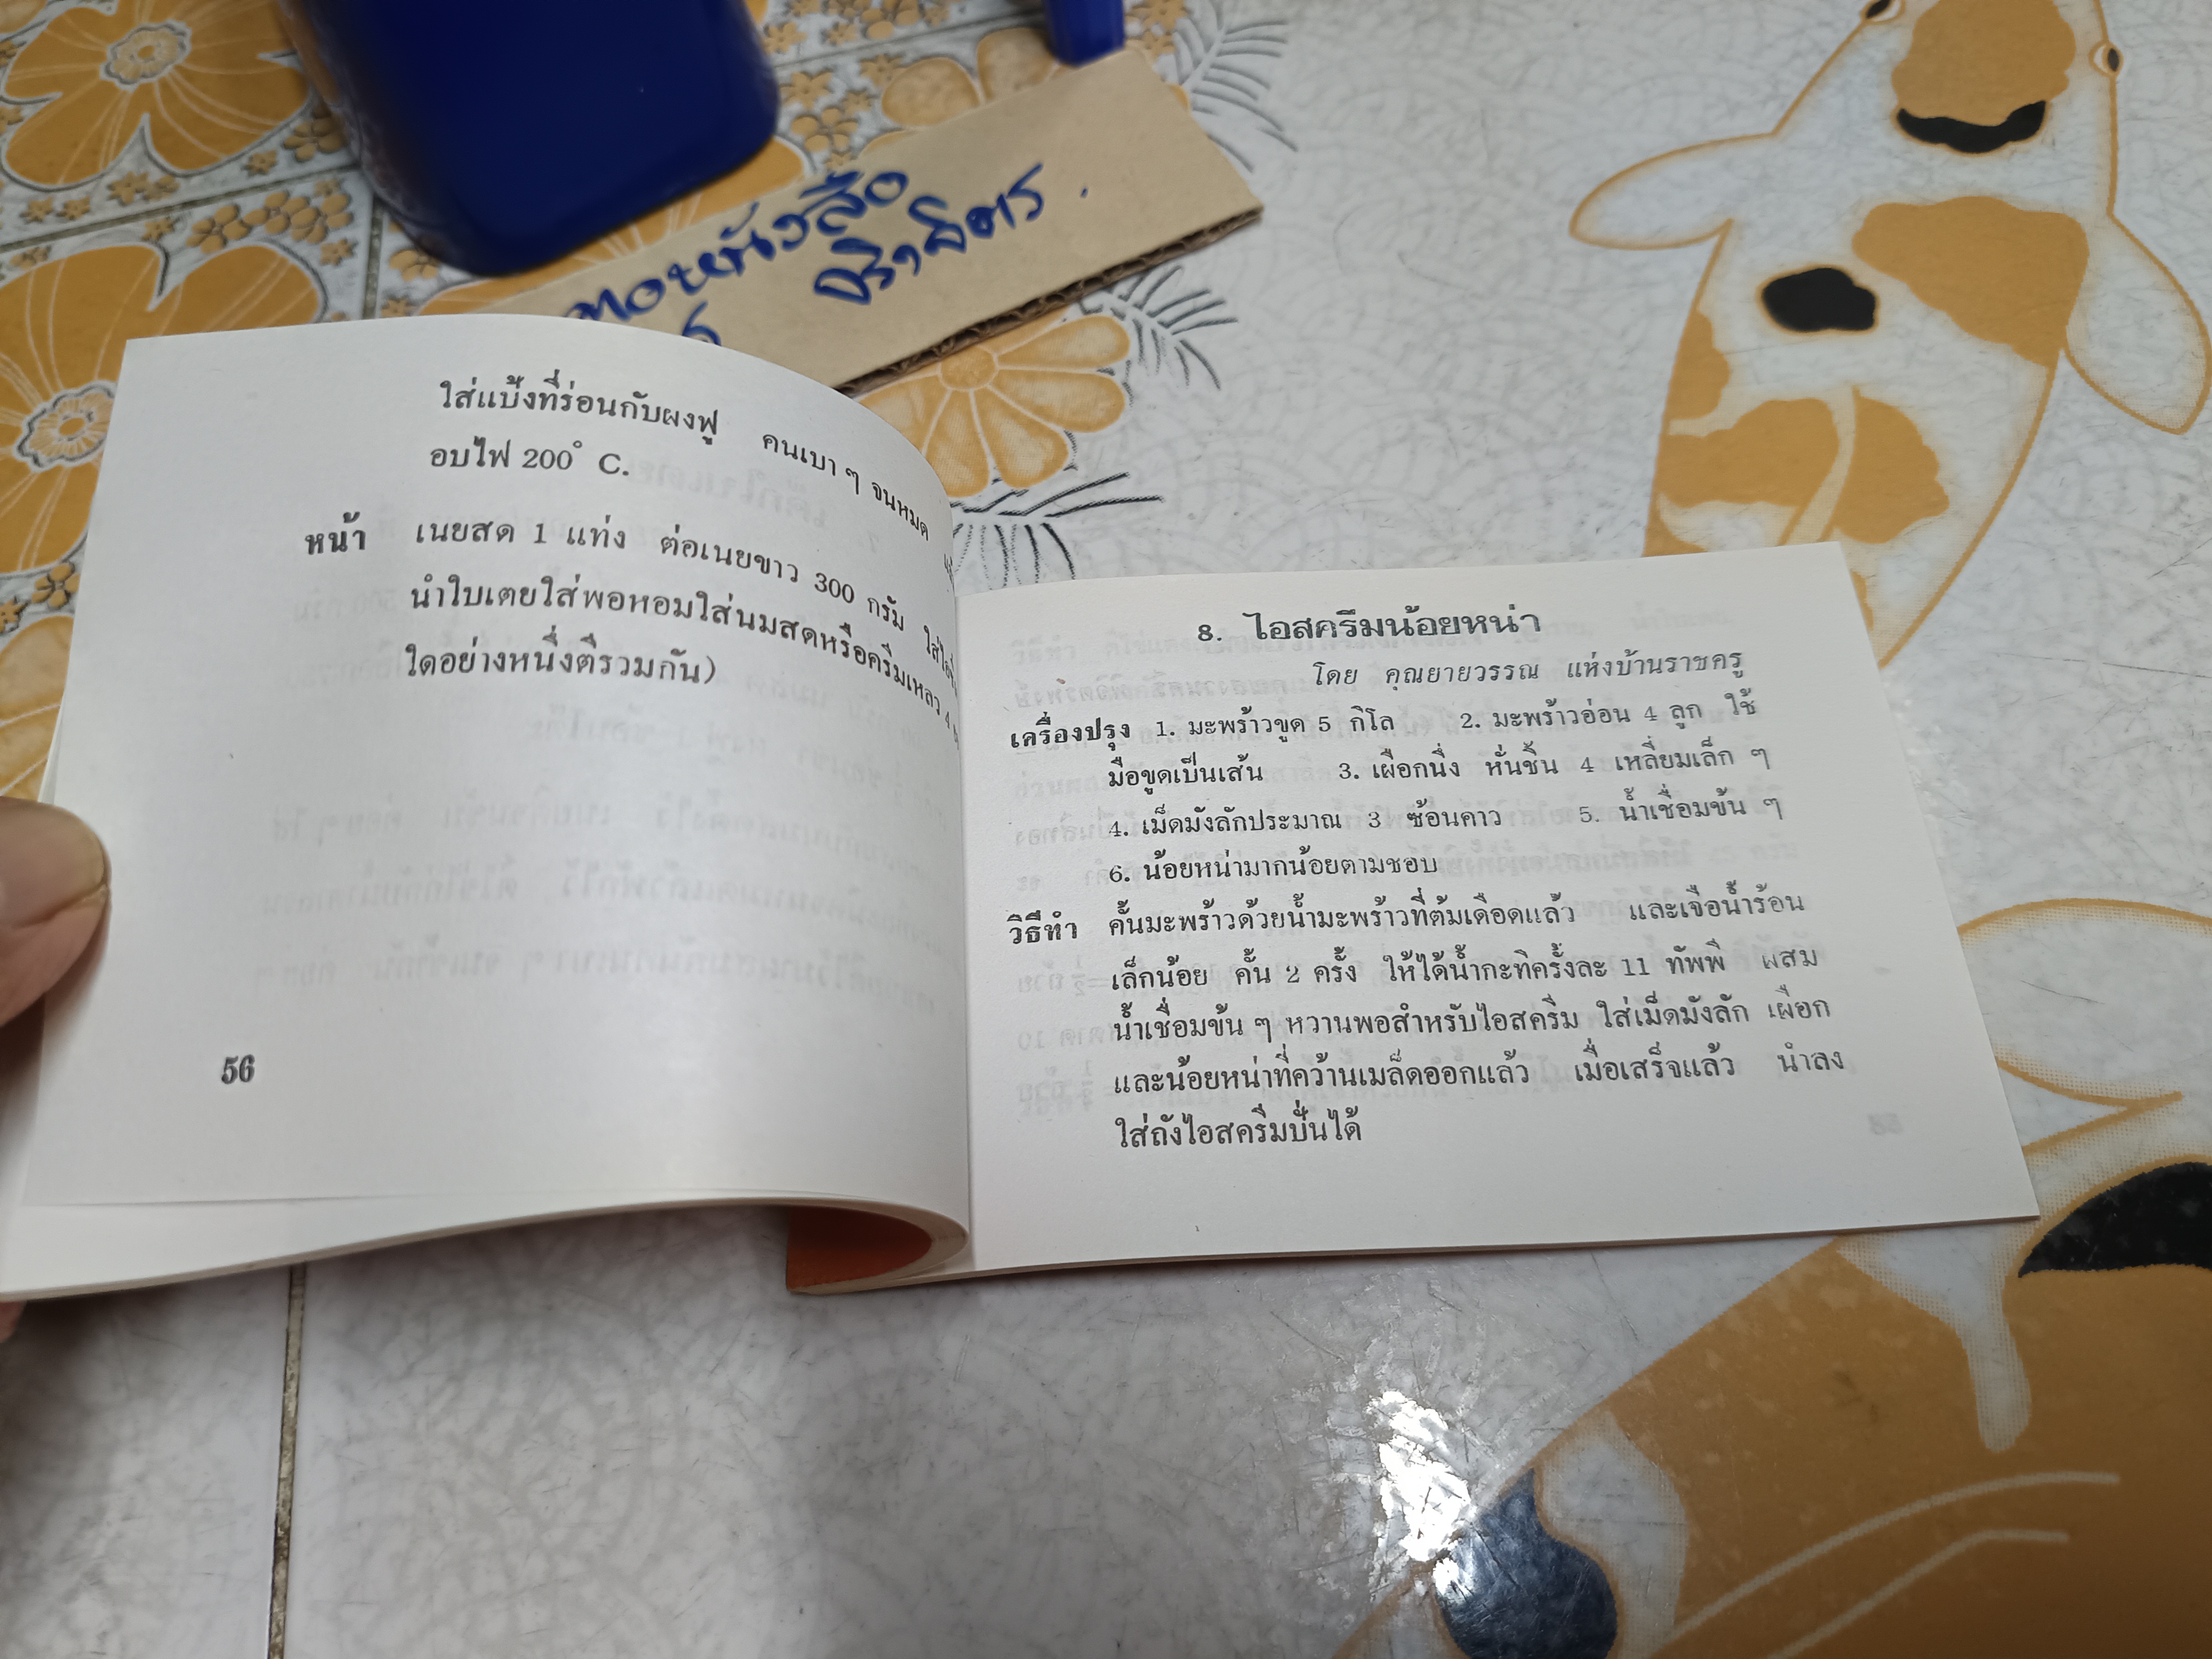 ใส่แป้งที่ร่อนกับผงฟู คนเบา ๆ จนหมด
อบไฟ 200° C.
หน้า เนยสด 1 แท่ง ต่อเนยขาว 300 กรัม
นำใบเตยใส่พอหอมใส่นมสดหรือครีมเหลว 4
ใดอย่างหนึ่งตีรวมกัน)
56
8. ไอสครีมน้อยหน่า
โดย คุณยายวรรณ แห่งบ้านราชครู
เครื่องปรุง 1. มะพร้าวขูด 5 กิโล 2. มะพร้าวอ่อน 4 ลูก ใช้
มือขูดเป็นเส้น 3. เผือกนึ่ง หั่นชิ้น 4 เหลี่ยมเล็ก ๆ
4. เม็ดมังลักประมาณ 3 ซ้อนคาว 5. น้ำเชื่อมข้น ๆ
6. น้อยหน่ามากน้อยตามชอบ
วิธีทำ คั้นมะพร้าวด้วยน้ำมะพร้าวที่ต้มเดือดแล้ว และเจือน้ำร้อน
เล็กน้อย คั้น 2 ครั้ง ให้ได้น้ำกะทิครั้งละ 11 ทัพพี ผสม
น้ำเชื่อมข้น ๆ หวานพอสำหรับไอสครีม ใส่เม็ดมังลัก เผือก
และน้อยหน่าที่คว้านเมล็ดออกแล้ว เมื่อเสร็จแล้ว นำลง
ใส่ถังไอสครีมปั่นได้